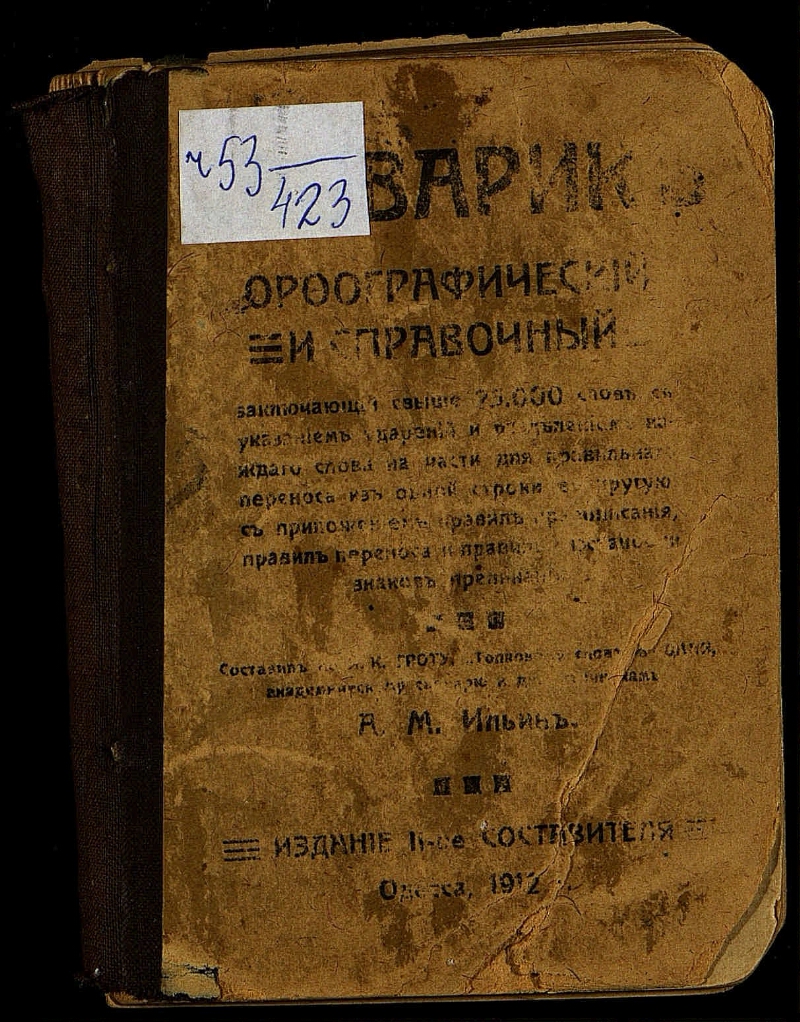 ч53
423
ВАРИКЪ
ОРѲОГРАФИЧЕСКІЙ
И СПРАВОЧНЫЙ
заключающій свыше 25.000 словъ съ
указаніемъ удареній и
ждаго слова на части для правильнаго
переноса изъ одной строки въ другую
съ приложеніемъ правилъ правописанія,
правилъ переноса и правилъ
знаковъ препинанія
Составилъ по К. ГРОТУ, Толковому
А. М. Ильинъ.
ИЗДАНІЕ II-ое СОСТАВИТЕЛЯ
Одесса, 1912 г.